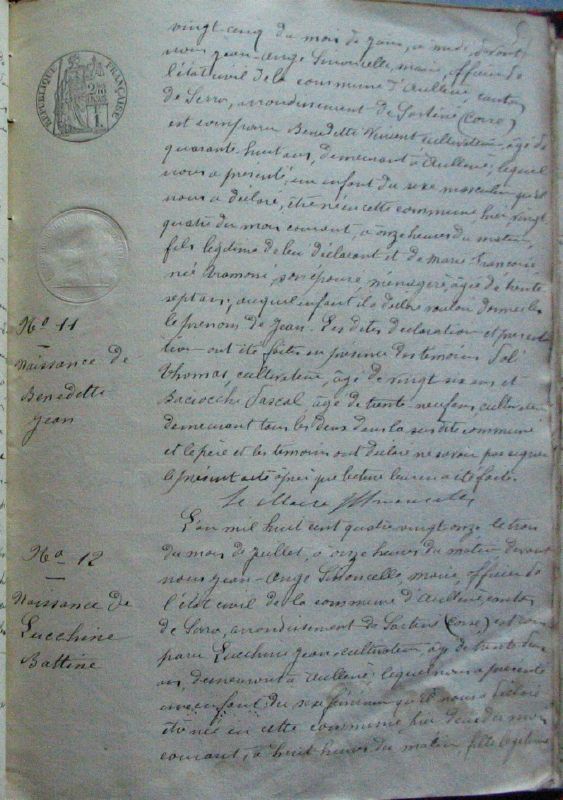 RÉPUBLIQUE FRANÇAISE
vingt cinq du mois de juin, à midi, devant
nous Jean-Ange Simoncelli, maire, officier de
l'état civil de la commune d'Aullène, canton
de Serra, arrondissement de Sartène (Corse)
est comparu Benedetti Vincent cultivateur, âgé de
quarante huit ans, demeurant à Aullène; lequel
nous a présenté un enfant du sexe masculin qu'il
nous a déclaré, être né en cette commune hier, vingt
quatre du mois courant, à onze heures du matin,
fils légitime de lui déclarant et de Marie Françoise
née Aramoni, son épouse, ménagère, âgée de trente
sept ans; auquel enfant il a déclaré vouloir donner
le prénom de Jean. Les dites déclaration et présenta
tion ont été faites en présence des témoins
Thomas, cultivateur, âgé de vingt six ans et
Baciocchi Pascal âgé de trente neuf ans cultivateur
demeurant tous les deux dans la susdite commune
et le père et les témoins ont déclaré ne savoir pas signer
le présent acte après que lecture leur en a été faite.
Le Maire Simoncelli
N° 11
Naissance de
Benedetti
Jean
L'an mil huit cent quatre vingt onze le trois
du mois de juillet, à onze heures du matin devant
nous Jean-Ange Simoncelli, maire, officier de
l'état civil de la commune d'Aullène, canton
de Serra, arrondissement de Sartène (Corse) est com
paru Lucchini Jean cultivateur, âgé de trente
ans, demeurant à Aullène lequel nous a présenté
une enfant du sexe féminin qu'il nous a déclaré
être née en cette commune hier deux du mois
courant, à huit heures du matin, fille légitime
N° 12
Naissance de
Lucchini
Battine